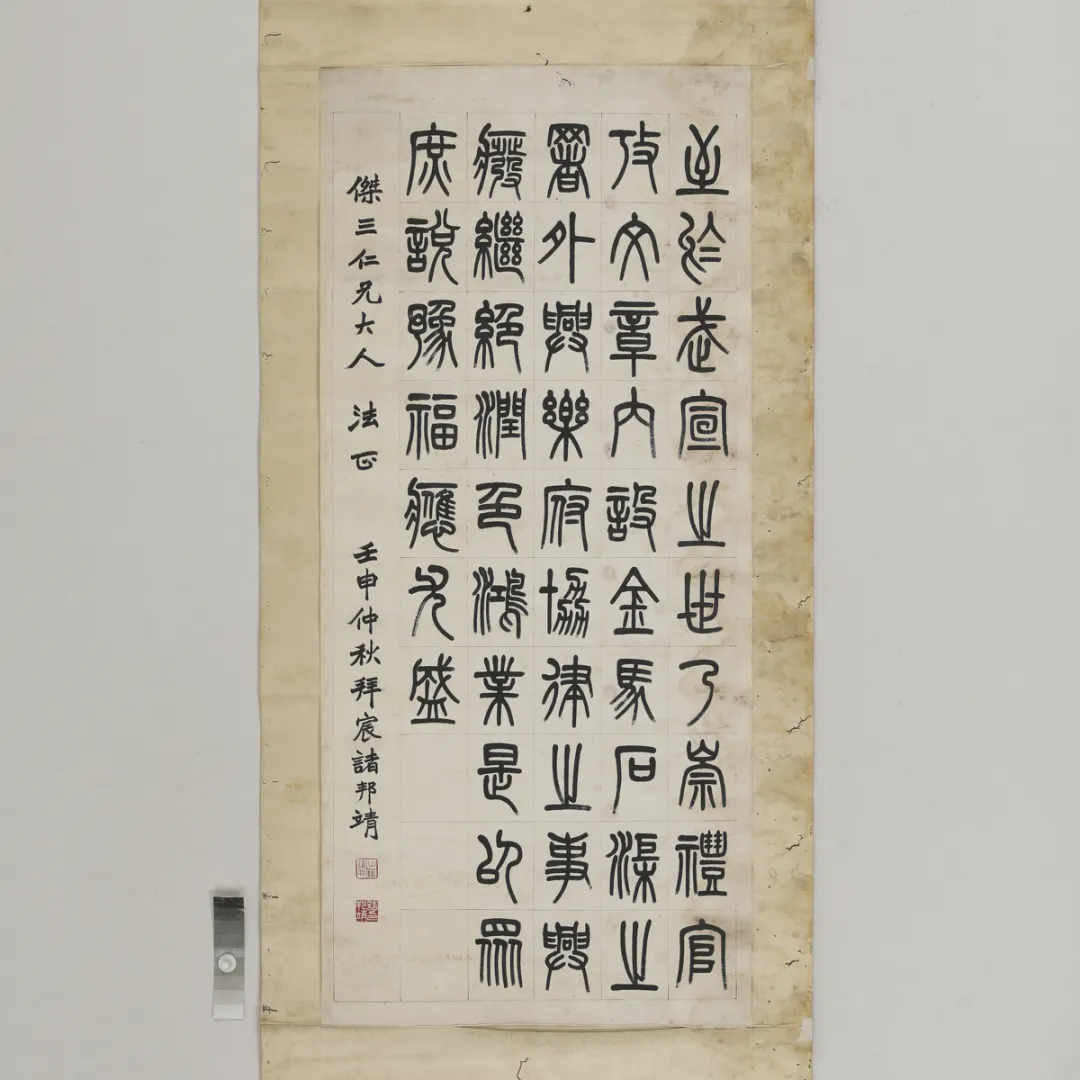 至於武宣之世乃崇禮官
攷文章內設金馬石渠之
署外興樂府協律之事興
癈繼絕潤色鴻業是以眾
庶說豫福應尤盛
傑三仁兄大人 法正 壬申仲秋拜宸諸邦靖